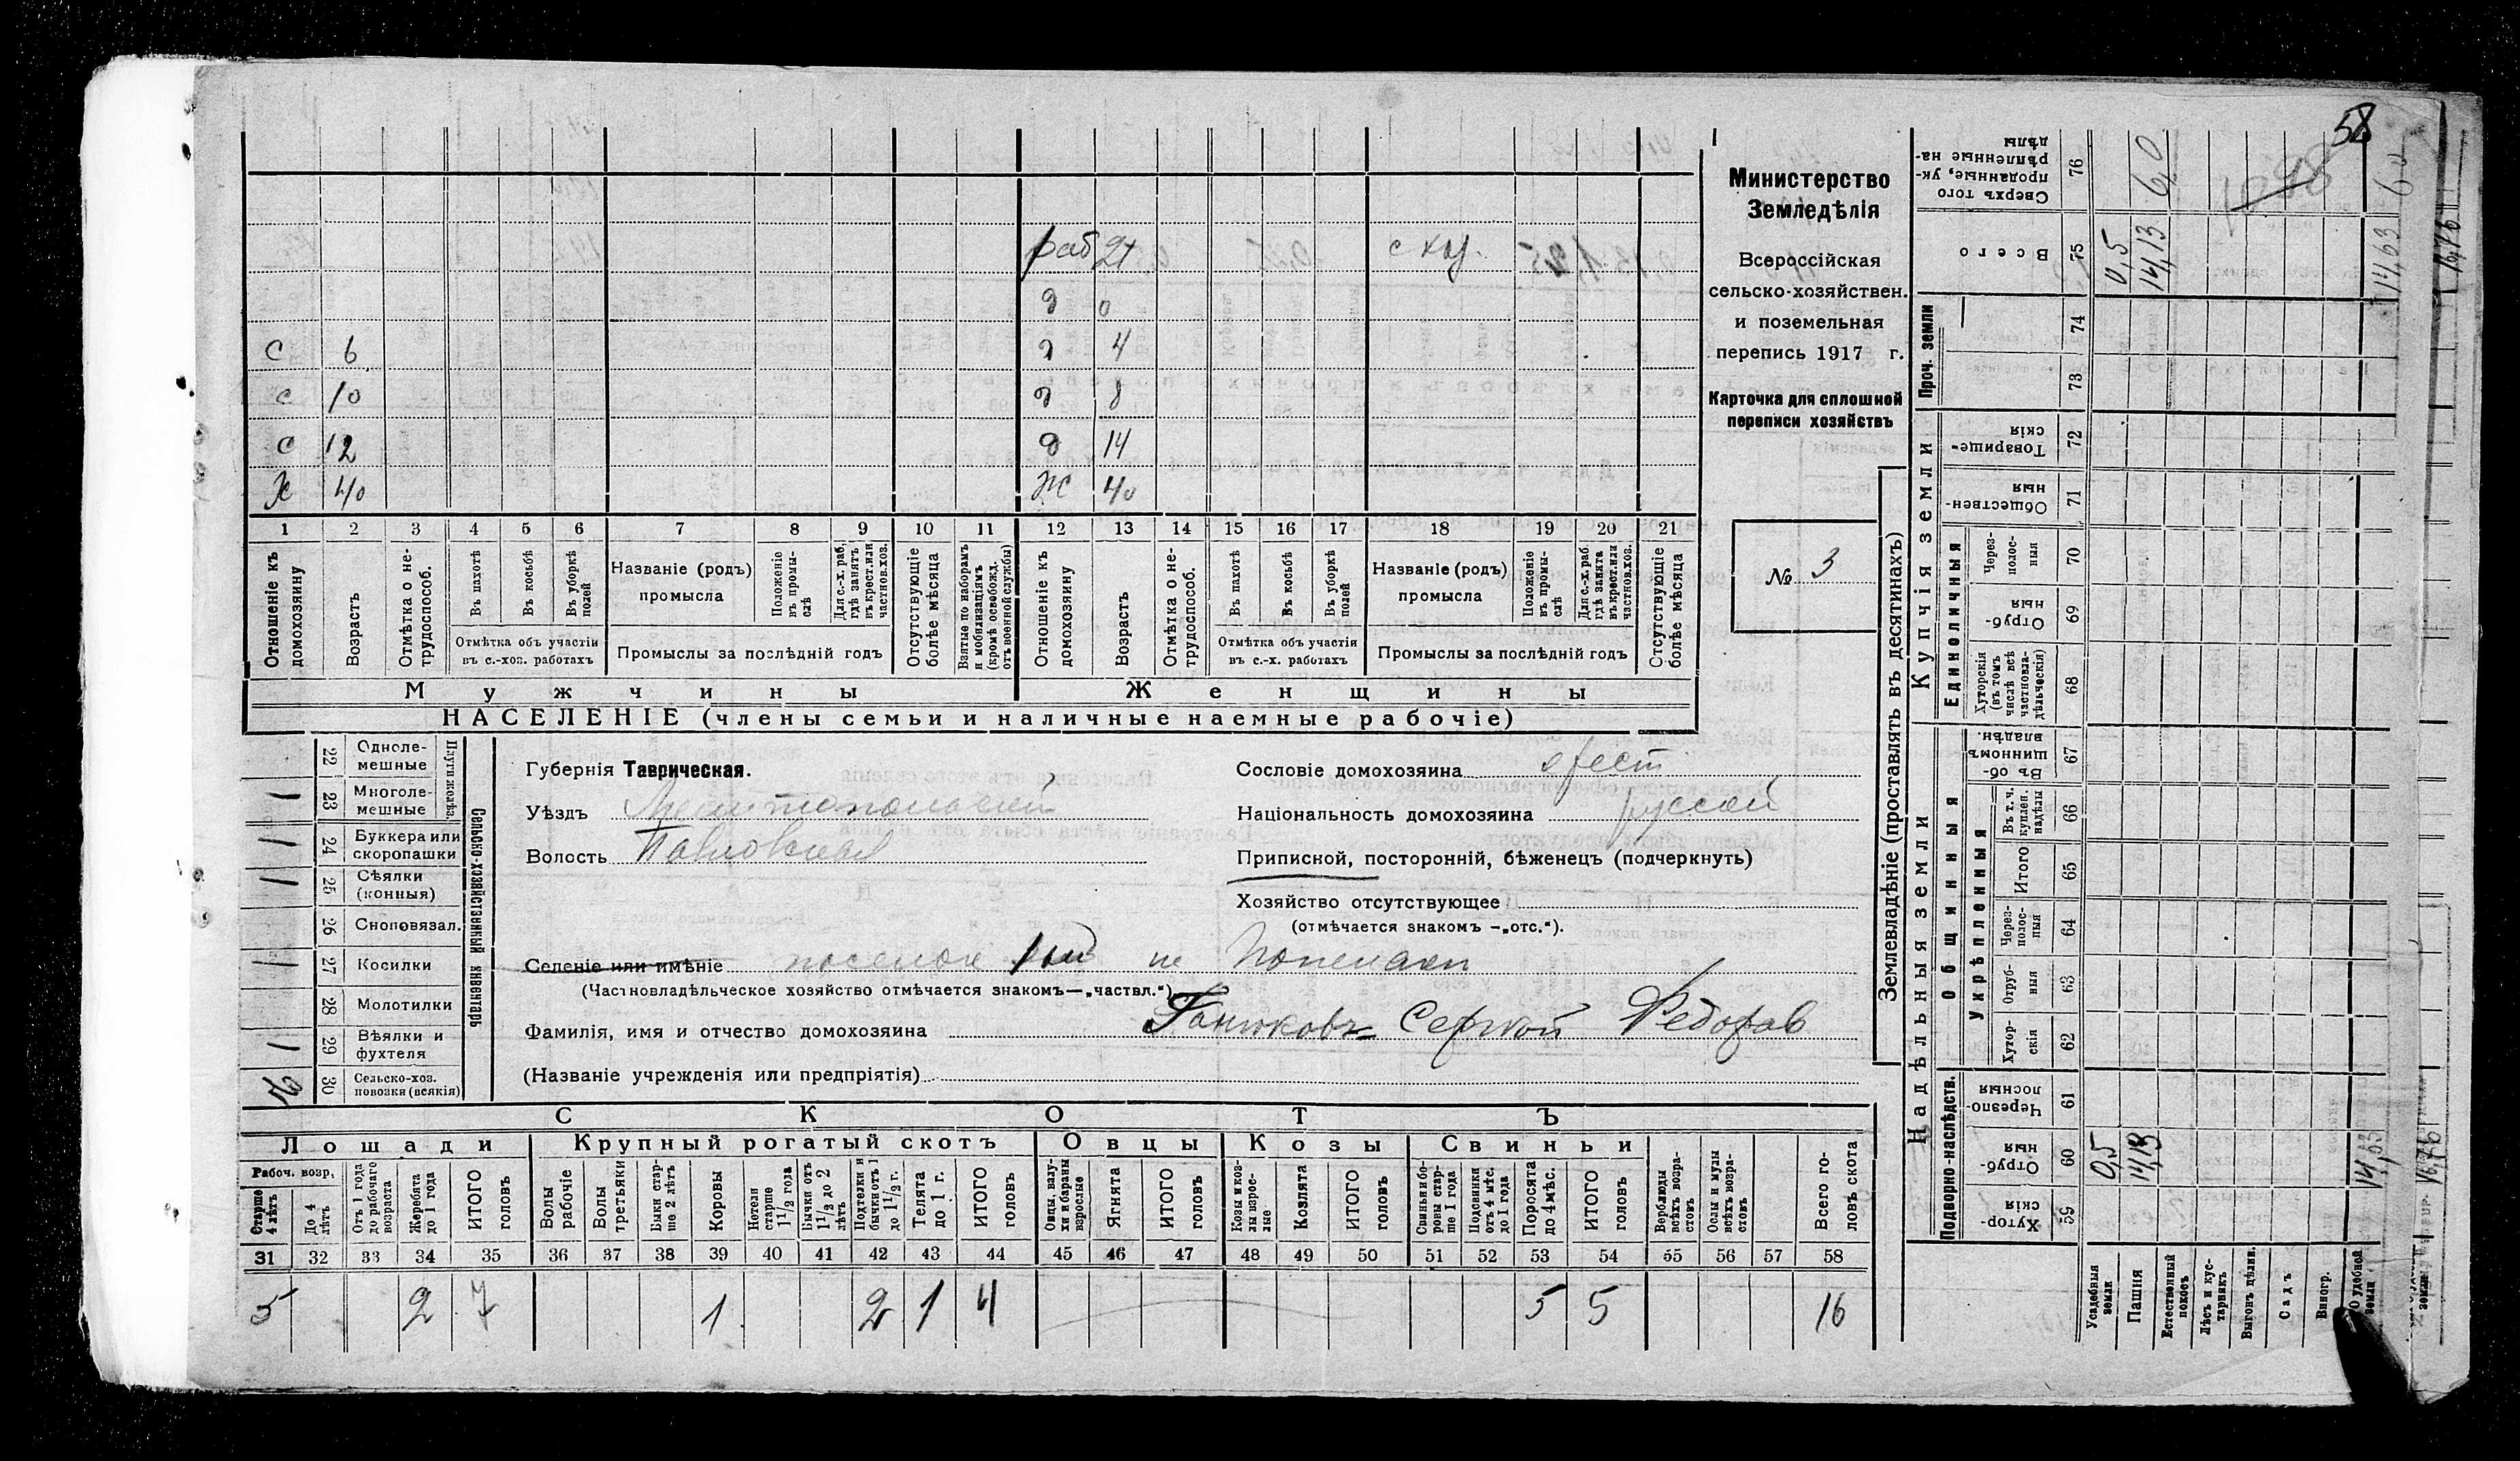 58
раб 21
д 0
с 6 д 4
с 10 д 8
с 12 д 14
Ж 40 Ж 40
1 2 3 4 5 6 7 8 9 10 11 12 13 14 15 16 17 18 19 20 21
Отношеніе къ домохозяину
Возрастъ
Отмѣтка о не-трудоспособ.
Въ пахотѣ
Въ косьбѣ
Въ уборкѣ полей
Отмѣтка объ участіи
въ с.-хоз. работахъ
Названіе (родъ)
промысла
Положеніе въ промы-слѣ
Для с.-х. раб. гдѣ занятъ въ крест. или частнов. хоз.
Промыслы за послѣдній годъ
Отсутствующіе болѣе мѣсяца
Взятые по наборамъ и мобилизаціямъ (кромѣ освобожд. отъ военной службы)
Отношеніе къ домохозяину
Возрастъ
Отмѣтка о не-трудоспособ.
Въ пахотѣ
Въ косьбѣ
Въ уборкѣ полей
Отмѣтка объ участіи
въ с.-х. работахъ
Названіе (родъ)
промысла
Положеніе въ промы-слѣ
Для с.-х. раб. гдѣ занята въ крест. или частнов. хоз.
Промыслы за послѣдній годъ
Отсутствующіе болѣе мѣсяца
Мужчины Женщины
НАСЕЛЕНІЕ (члены семьи и наличные наемные рабочіе)
Министерство
Земледѣлія
Всероссійская
сельско-хозяйствен.
и поземельная
перепись 1917 г.
Карточка для сплошной
переписи хозяйствъ
№ 3
Сельско-хозяйственный инвентарь
22 Одноле-мешные
23 Многоле-мешные 1
24 Буккера или скоропашки 1
25 Сѣялки (конныя) 1
26 Сноповязал.
27 Косилки 1
28 Молотилки
29 Вѣялки и фухтеля 1
30 Сельско-хоз. повозки (всякія)
Губернія Таврическая.
Уѣздъ Мелитопольский
Волость Павловская
Сословіе домохозяина
Національность домохозяина русский
Приписной, посторонній, бѣженецъ (подчеркнуть)
Хозяйство отсутствующее
(отмѣчается знакомъ —„отс.“).
Селеніе или имѣніе поселок 1ый
(Частновладѣльческое хозяйство отмѣчается знакомъ—„частвл.“)
Фамилія, имя и отчество домохозяина Ганюковъ Сергей Федоров
(Названіе учрежденія или предпріятія)
СКОТЪ
Лошади Крупный рогатый скотъ Овцы Козы Свиньи
Рабоч. возр.
Старше 4 лѣтъ
До 4 лѣтъ
Отъ 1 года до рабочаго возраста
Жеребята до 1 года
ИТОГО головъ
Волы рабочіе
Волы третьяки
Быки стар-ше 2 лѣтъ
Коровы
Нетели старше 1 1/2 года
Бычки отъ 1 1/2 до 2 лѣтъ
Подтелки и бычки отъ 1 до 1 1/2 г.
Телята до 1 г.
ИТОГО головъ
Овцы, валу-хи и бараны взрослые
Ягнята
ИТОГО головъ
Козы и коз-лы взрос-лые
Козлята
ИТОГО головъ
Свиньи и бо-ровы стар-ше 1 года
Подсвинки отъ 4 мѣс. до 1 года
Поросята до 4 мѣс.
ИТОГО головъ
Верблюды всѣхъ возра-стовъ
Ослы и мулы всѣхъ возра-стовъ
Всего го-ловъ скота
31 32 33 34 35 36 37 38 39 40 41 42 43 44 45 46 47 48 49 50 51 52 53 54 55 56 57 58
5 2 7 1 2 1 4 5 5 16
Землевладѣніе (проставлять въ десятинахъ)
Надѣльныя земли Купчія земли Проч. земли
Подворно-наслѣдств. Общинныя Единоличныя
Укрѣпленныя
Сверхъ того проданные, ук-рѣпленные на-дѣлы 76 6,0
Всего 75 0,5 14,13 14,63
74
73
Товарище-скія 72
Обществен-ныя 71
Через-полос-ныя 70
Отруб-ныя 69
Хуторскія (въ томъ числѣ всѣ частновла-дѣльческія) 68
Въ об-щинномъ владѣн. 67
Въ т. ч. куплен. надѣлы 66
Итого 65
Через-полос-ныя 64
Отруб-ныя 63
Хутор-скія 62
Черезпо-лосныя 61
Отруб-ныя 60 0,5 14,13
Хутор-скія 59
Усадебныя земли
Пашня
Естественный покосъ
Лѣсъ и кус-тарникъ
Выгонъ дѣлин.
Садъ
Виногр.
О удобной земли